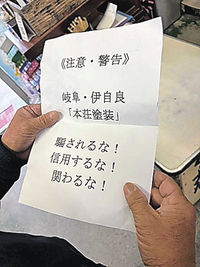 《注意・警告》
岐阜・伊自良
「本荘塗装」
騙されるな!
信用するな!
関わるな!